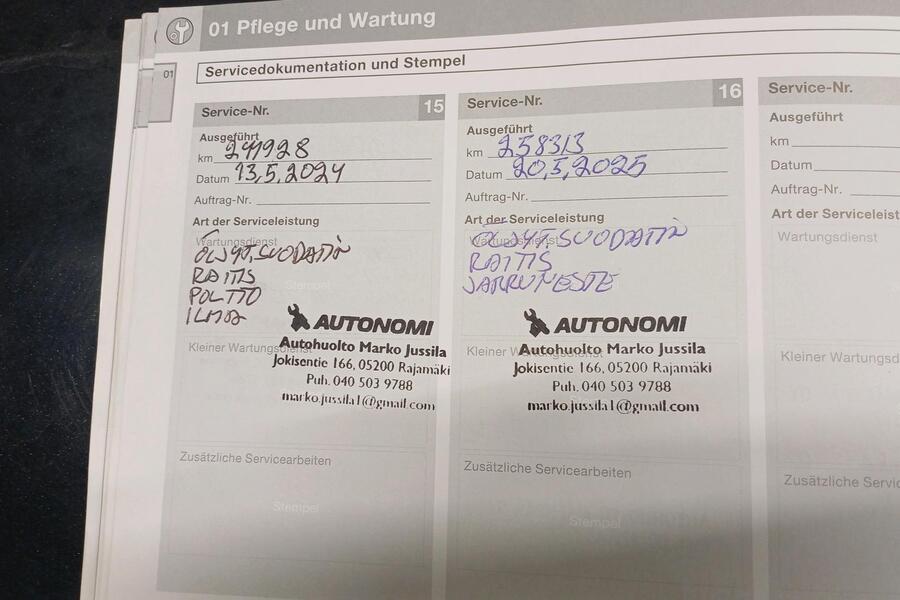 01 Pflege und Wartung
01
Servicedokumentation und Stempel
Service-Nr. 15
Ausgeführt
km 241928
Datum 13.5.2024
Auftrag-Nr.
Art der Serviceleistung
Wartungsdienst
ÖLJYT, SUODATIN
RAITIS
POLTTO
ILMA
Stempel
AUTONOMI
Kleiner Wartungsdienst
Autohuolto Marko Jussila
Jokisentie 166, 05200 Rajamäki
Puh. 040 503 9788
marko.jussila1@gmail.com
Zusätzliche Servicearbeiten
Stempel
Service-Nr. 16
Ausgeführt
km 258313
Datum 20.5.2025
Auftrag-Nr.
Art der Serviceleistung
Wartungsdienst
ÖLJYT, SUODATIN
RAITIS
JARRUNESTE
AUTONOMI
Kleiner Wartungsdienst
Autohuolto Marko Jussila
Jokisentie 166, 05200 Rajamäki
Puh. 040 503 9788
marko.jussila1@gmail.com
Zusätzliche Servicearbeiten
Stempel
Service-Nr.
Ausgeführt
km
Datum
Auftrag-Nr.
Art der Serviceleist
Wartungsdienst
Kleiner Wartungsd
Zusätzliche Servic